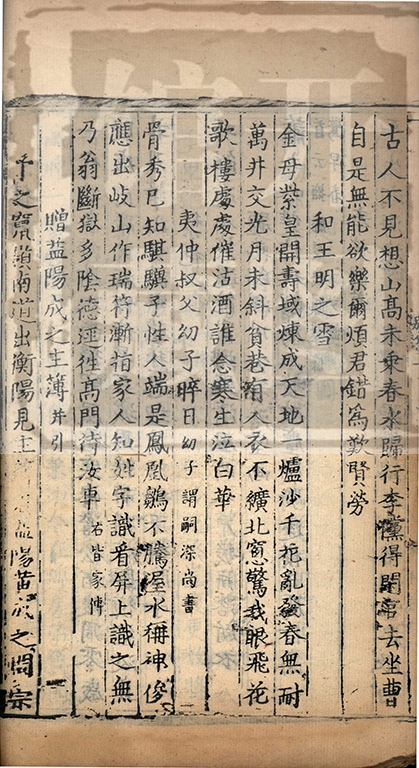 古人不見想山高未乗春水歸行李儻得閑官去坐曹
自是無能欲樂爾煩君錯爲歎賢勞
和王明之雪
金母紫皇開壽域煉成天地一爐沙千花亂發春無耐
萬井交光月未斜貧巷有人衣不纊北窓驚我眼飛花
歌樓處處催沽酒誰念寒生泣白華
夷仲叔父幼子晬日幼子謂嗣深尚書
骨秀已知騏驥子性人端是鳳凰鶵不騰渥水稱神俊
應出岐山作瑞符漸指家人知姓字試看屏上識之無
乃翁斷獄多陰德逕徃髙門待汝車右皆家傳
贈益陽成之主簿并引
予之竄謫南道出衡陽見主益陽黄成之問宗